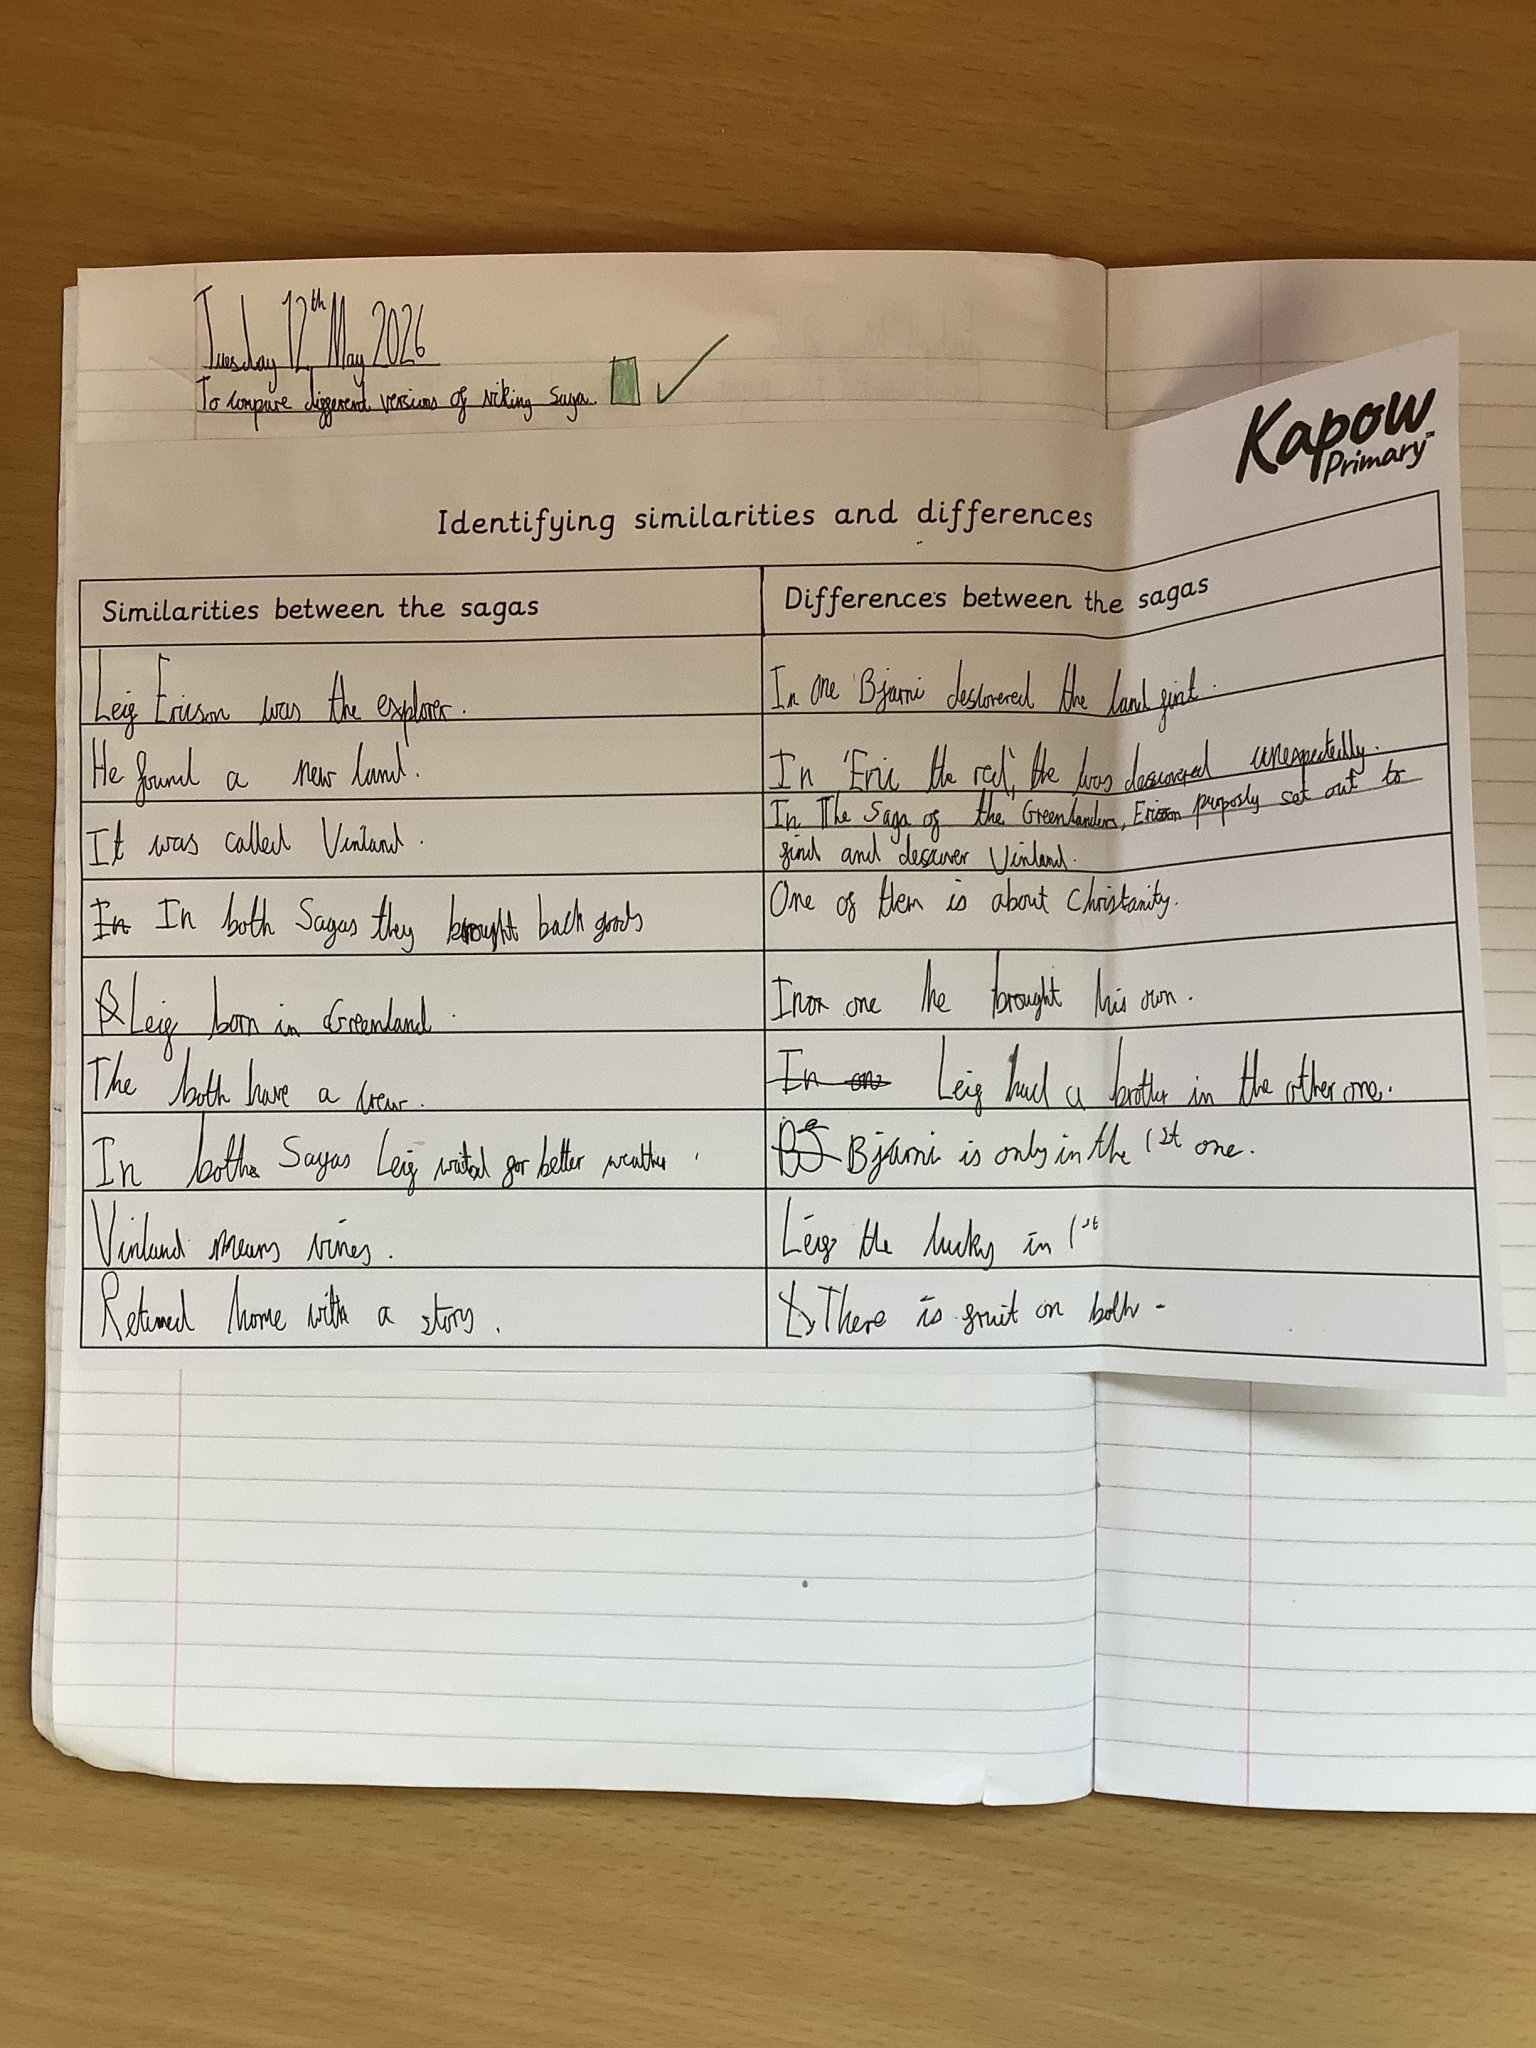 Tuesday 12th May 2026
To compare different versions of viking saga.
Kapow
Primary™
Identifying similarities and differences
Similarities between the sagas
Differences between the sagas
Leif Ericson was the explorer.
In one Bjarni descovered the land first.
He found a new land.
In 'Eric the red', he was descovered unexpectedly.
It was called Vinland.
In The Saga of the Greenlanders, Ericson proposly set out to
find and descover Vinland.
In In both Sagas they brought back goods
One of them is about Christanity.
Leif born in Greenland.
In one he brought his own.
The both have a crew.
In one Leif had a brother in the other one.
In both Sagas Leif waited for better weather.
BJ Bjarni is only in the 1st one.
Vinland means vines.
Leif the lucky in 1st
Returned home with a story.
There is fruit on both -